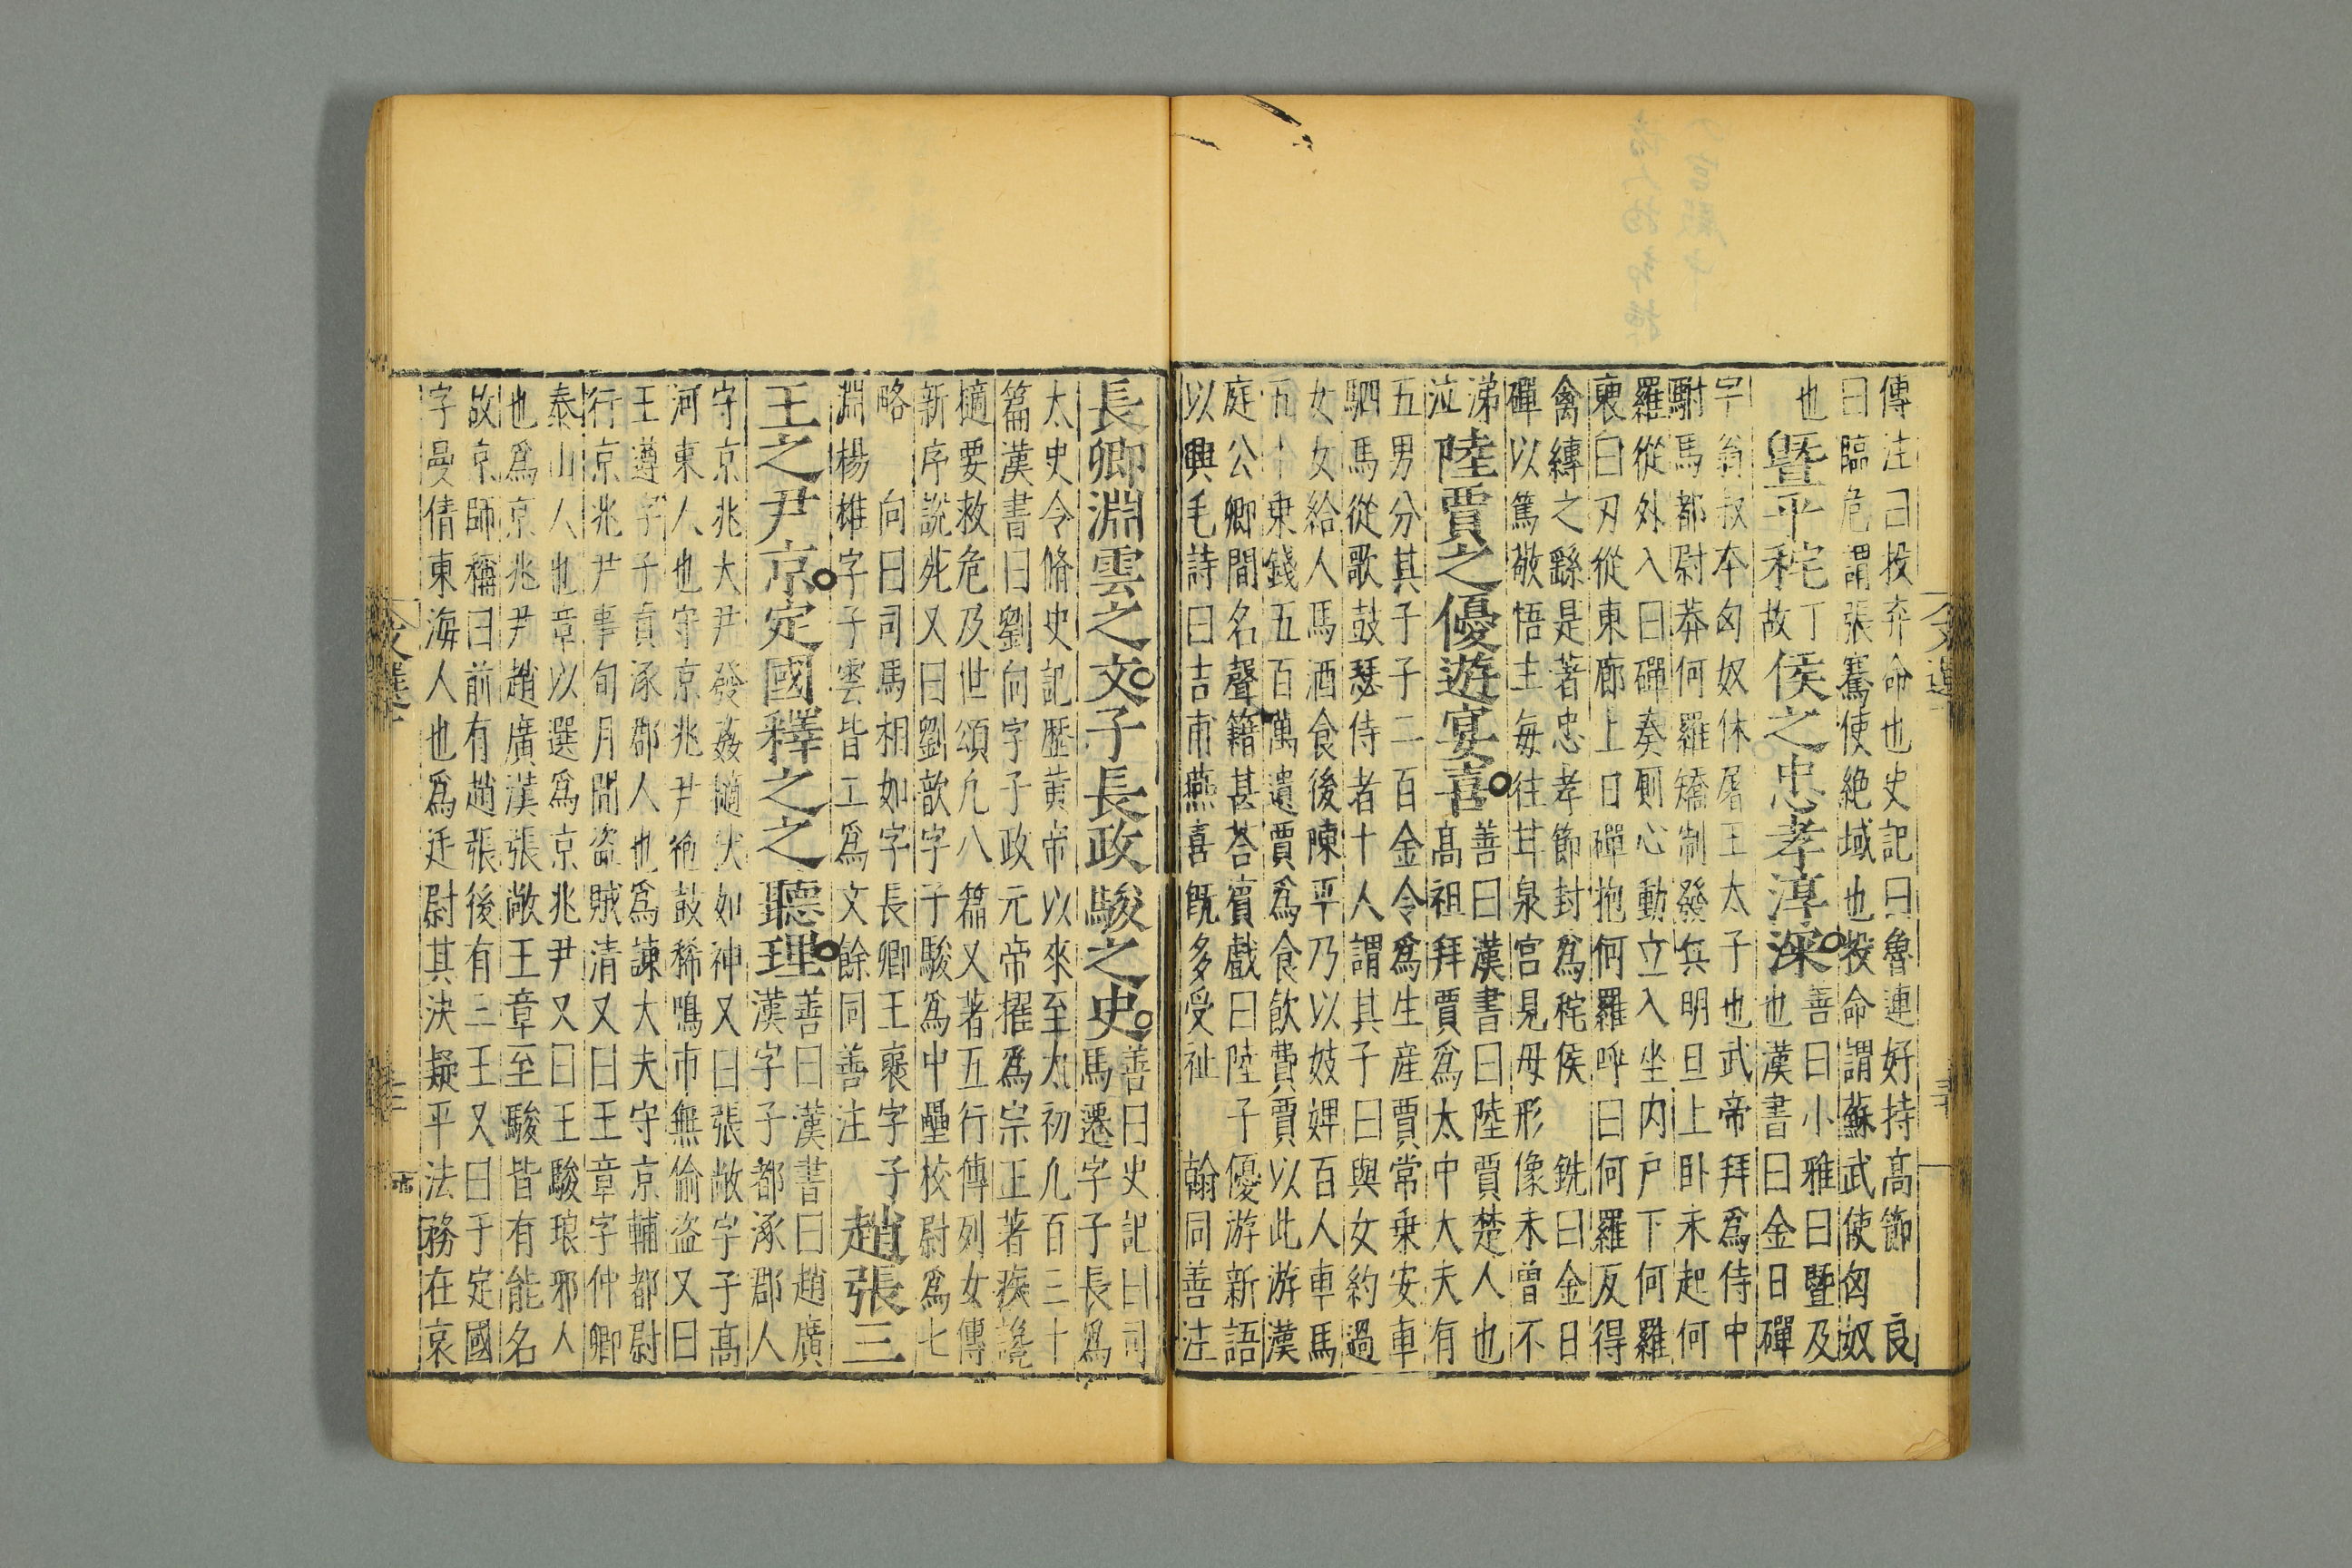 傳注曰投弃命也史記曰魯連好持高節　良
曰臨危謂張騫使絶域也投命謂蘇武使匈奴
也
曁平秺
宅丁
故
侯之忠孝淳深
善曰小雅曰曁及
也漢書曰金日磾
字翁叔本匈奴休屠王太子也武帝拜爲侍中
駙馬都尉莽何羅矯制發兵明旦上卧未起何
羅從外入日磾奏厠心動立入坐内户下何羅
褏白刃從東廊上日磾抱何羅呼曰何羅反得
禽縳之繇是著忠孝節封爲秺侯　銑曰金日
磾以篤敬悟主毎往甘泉宫見母形像未曾不
涕
泣
陸賈之優遊宴喜
善曰漢書曰陸賈楚人也
高祖拜賈爲太中大夫有
五男分其子子二百金令爲生産賈常乗安車
駟馬從歌鼓瑟侍者十人謂其子曰與女約過
女女給人馬酒食後陳平乃以妓婢百人車馬
五十乗錢五百萬遺賈爲食飲費賈以此游漢
庭公卿間名聲籍甚荅賔戲曰陸子優游新語
以興毛詩曰吉甫燕喜既多受祉　翰同善注
長卿淵雲之文子長政駿之史
善曰史記曰司
馬遷字子長爲
太史令脩史記歴黄帝以來至太初凢百三十
篇漢書曰劉向字子政元帝擢爲宗正著疾讒
擿要救危及世頌凢八篇又著五行傳列女傳
新序說苑又曰劉歆字子駿爲中壘校尉爲七
略　向曰司馬相如字長卿王褒字子
淵楊雄字子雲皆工爲文餘同善注
趙張三
王之尹京定國釋之之聽理
善曰漢書曰趙廣
漢字子都涿郡人
守京兆大尹發姦擿伏如神又曰張敞字子高
河東人也守京兆尹枹鼓稀鳴市無偷盜又曰
王遵字子貢涿郡人也爲諫大夫守京輔都尉
行京兆尹事旬月間盜賊清又曰王章字仲卿
泰山人也章以選爲京兆尹又曰王駿琅邪人
也爲京兆尹趙廣漢張敞王章至駿皆有能名
故京師稱曰前有趙張後有三王又曰于定國
字曼倩東海人也爲廷尉其决疑平法務在哀